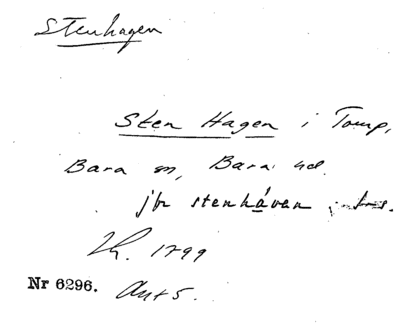 Stenhagen
Sten Hagen i Torup,
Bara sn, Bara hd.
jfr stenháven
1799
Nr 6296. Akt 5.